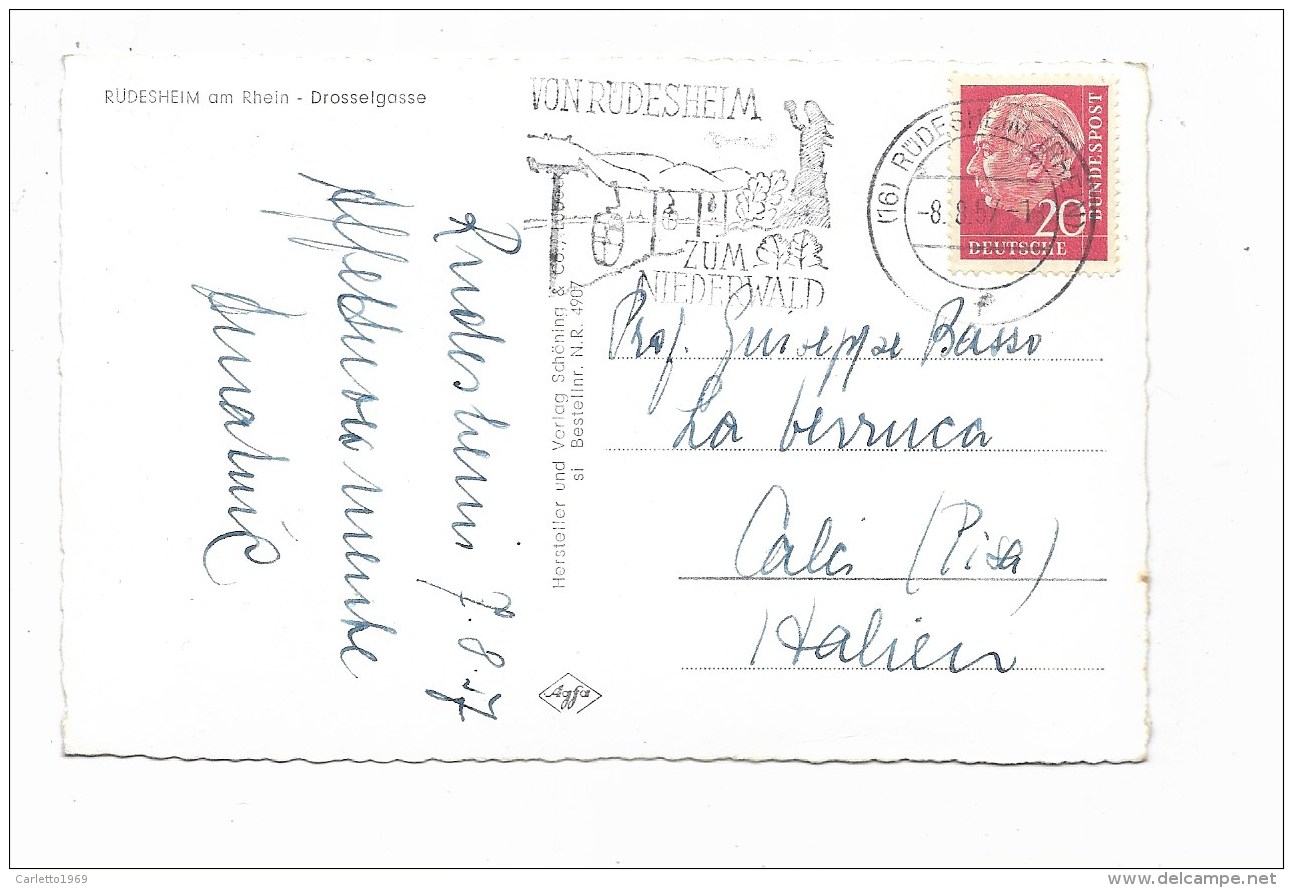 RÜDESHEIM am Rhein - Drosselgasse
VON RÜDESHEIM
ZUM
NIEDERWALD
(16) RÜDESHEIM
-8.8.57-1
BUNDESPOST
20
DEUTSCHE
Hersteller und Verlag Schöning & Co.,
si Bestellnr. N.R. 4907
Rudesheim 7.8.57
Affettuosamente
Prof. Giuseppe Basso
La Verruca
Calci (Pisa)
Italien
Agfa
Carletto1969
delcampe.net